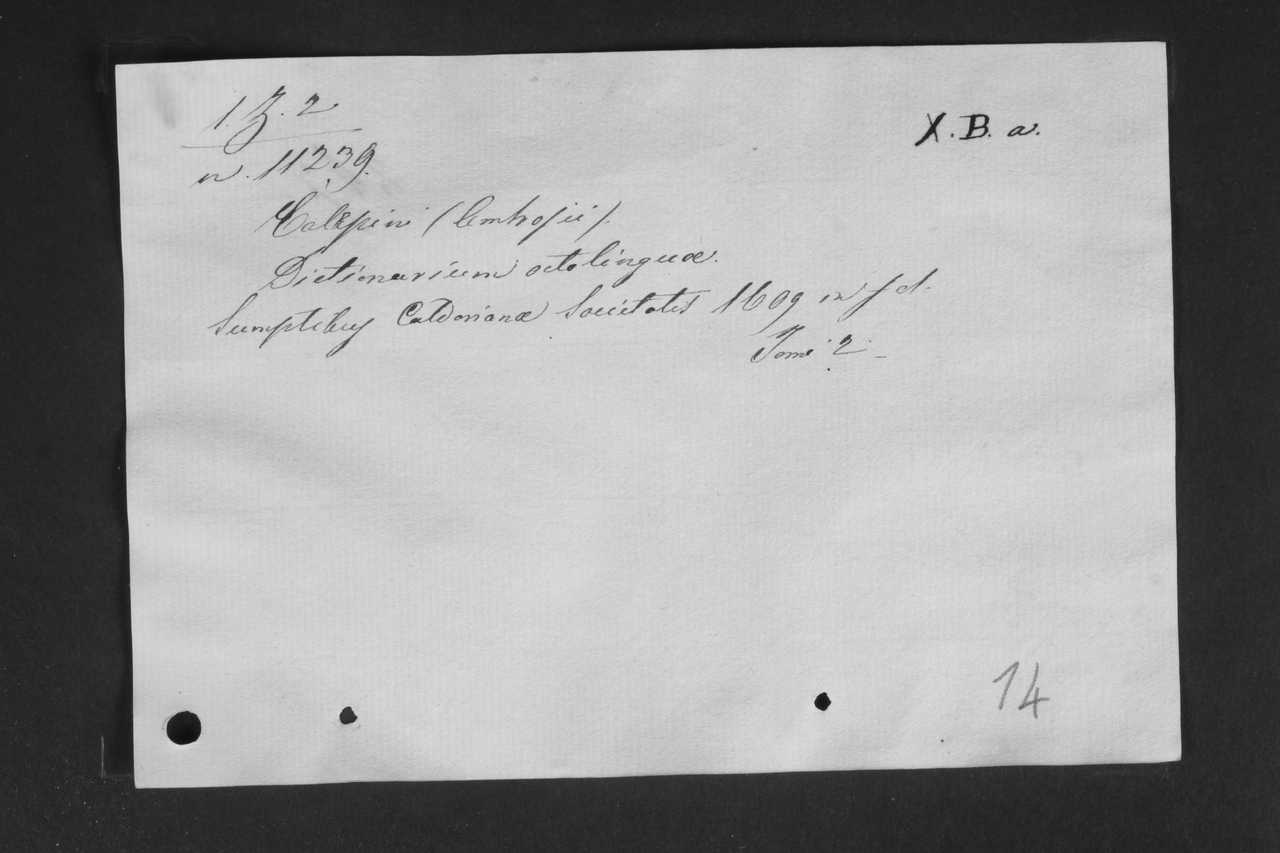 1. Z. 2
X. B. a.
n. 11239.
Calepini (Ambrosii).
Dictionarium octolinguæ.
Sumptibus Caldorianæ Societatis 1609 in fol.
Tomi 2
14